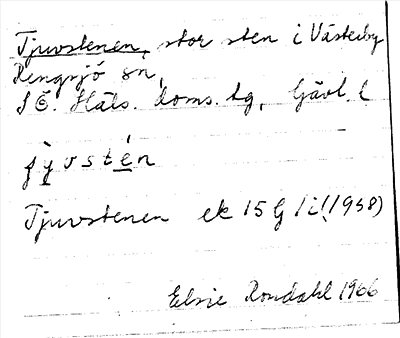 Tjuvstenen, stor sten i Västerby
Rengsjö sn,
S Ö. Häls. doms. tg, Gävl. l
jy̲vsté̲n
Tjuvstenen ek 15 G 1 i (1958)
Elsie Rondahl 1966